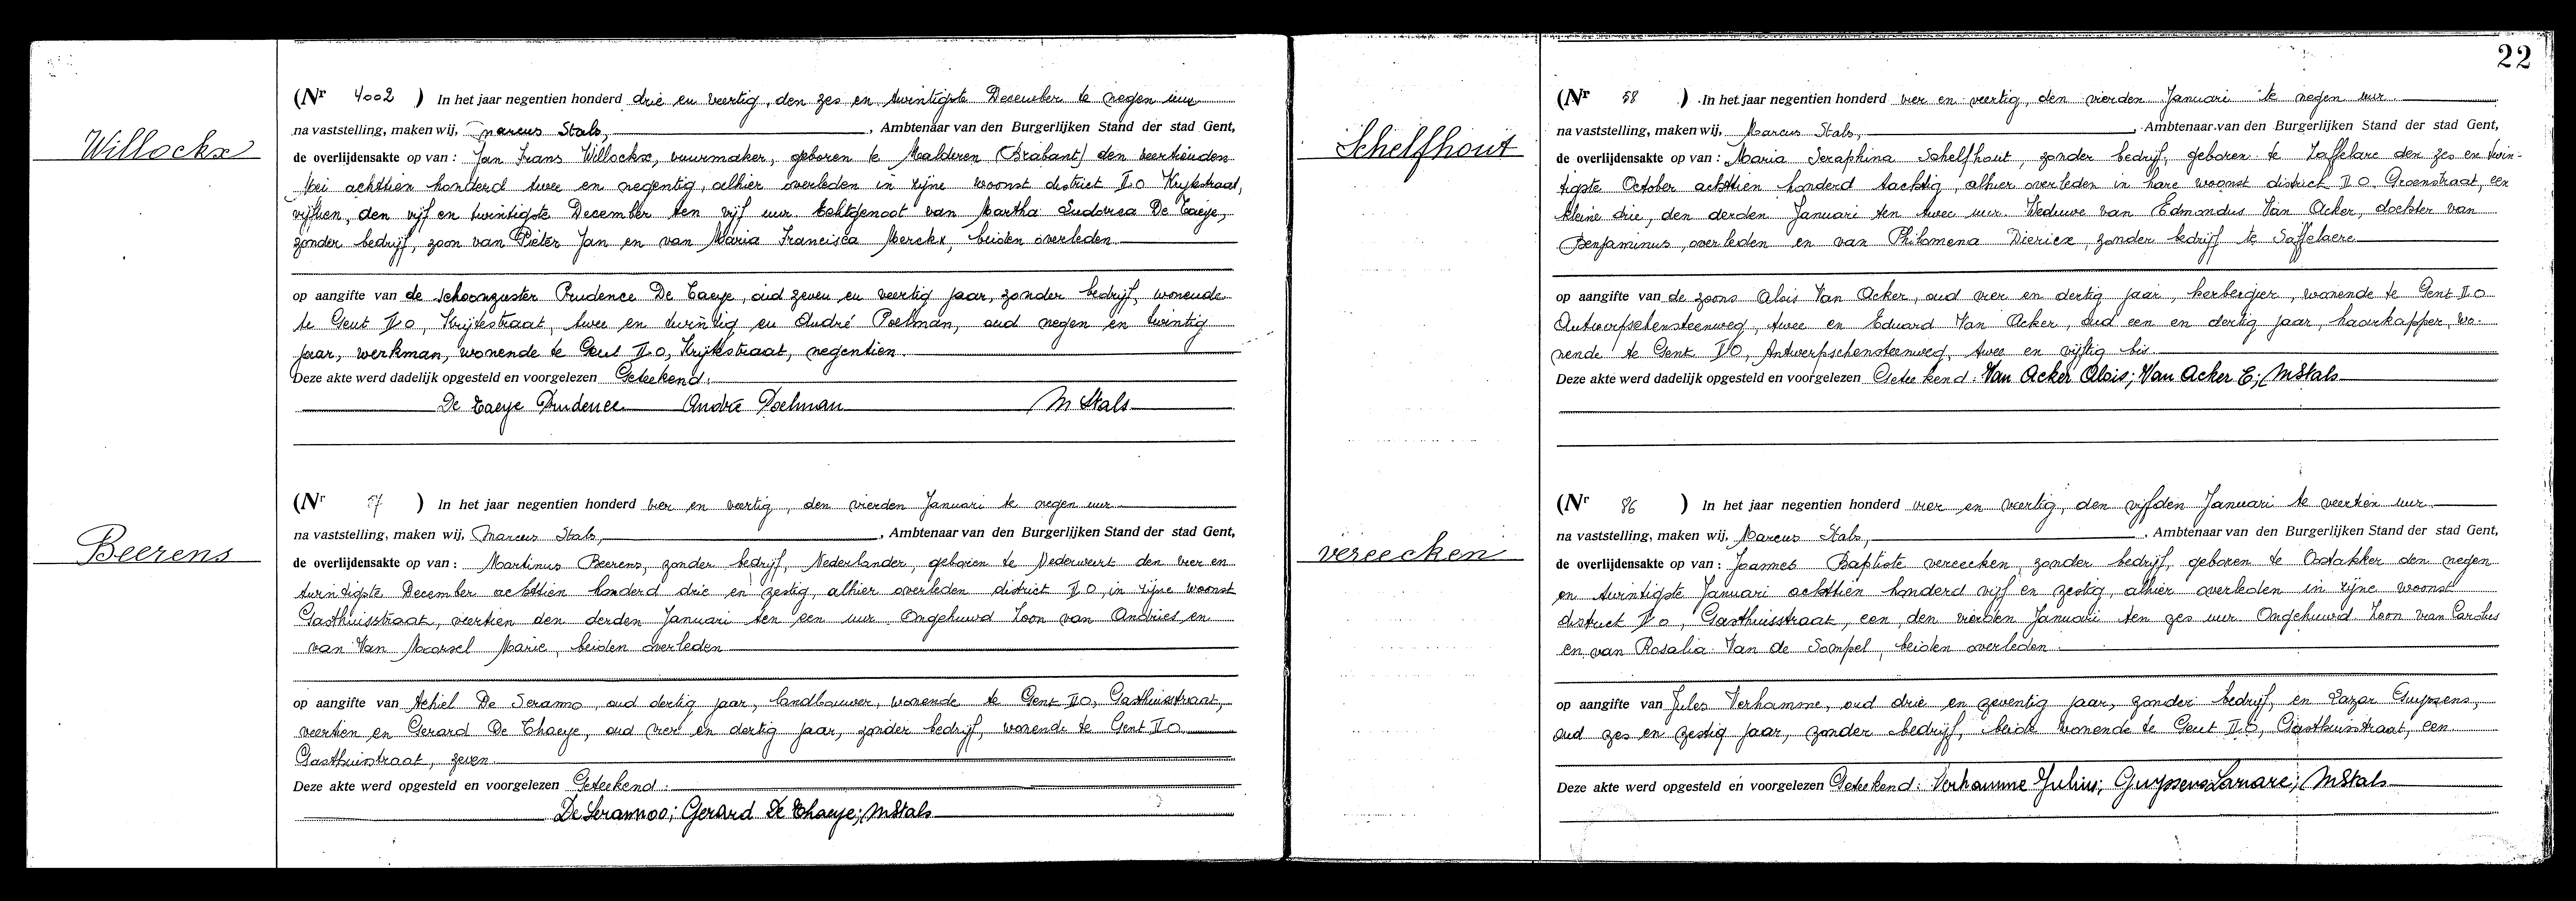 Willockx
(Nr 4002 ) In het jaar negentien honderd drie en veertig, den zes en twintigste December te negen uur
na vaststelling, maken wij, Marcus Stals, , Ambtenaar van den Burgerlijken Stand der stad Gent,
de overlijdensakte op van : Jan Frans Willockx, vuurmaker, geboren te Malderen (Brabant) den veertienden
Mei achttien honderd twee en negentig, alhier overleden in zijne woonst district II O Krijtestraat,
vijftien, den vijf en twintigste December ten vijf uur. Echtgenoot van Martha Ludovica De Taeye,
zonder bedrijf, zoon van Pieter Jan en van Maria Francisca Merckx, beiden overleden
op aangifte van de schoonzuster Prudence De Taeye, oud zeven en veertig jaar, zonder bedrijf, wonende
te Gent II O, Krijtestraat, twee en twintig en André Poelman, oud negen en twintig
jaar, werkman, wonende te Gent II O, Krijtestraat, negentien.
Deze akte werd dadelijk opgesteld en voorgelezen Geteekend:
De Taeye Prudence André Poelman M Stals
Beerens
(Nr 57 ) In het jaar negentien honderd vier en veertig, den vierden Januari te negen uur
na vaststelling, maken wij, Marcus Stals, , Ambtenaar van den Burgerlijken Stand der stad Gent,
de overlijdensakte op van : Martinus Beerens, zonder bedrijf, Nederlander, geboren te Nederweert den vier en
twintigste December achttien honderd drie en zestig, alhier overleden district II O, in zijne woonst
Gasthuisstraat, veertien den derden Januari ten een uur. Ongehuwd Zoon van Andries en
van Van Moorsel Marie, beiden overleden
op aangifte van Achiel De Seranno, oud dertig jaar, landbouwer, wonende te Gent II O, Gasthuisstraat,
veertien en Gerard De Thaeye, oud vier en dertig jaar, zonder bedrijf, wonende te Gent II O
Gasthuisstraat, zeven.
Deze akte werd opgesteld en voorgelezen Geteekend:
De Serannoo; Gerard De Thaeye; MStals
22
Schelfhout
(Nr 58 ) In het jaar negentien honderd vier en veertig, den vierden Januari te negen uur
na vaststelling, maken wij, Marcus Stals, , Ambtenaar van den Burgerlijken Stand der stad Gent,
de overlijdensakte op van : Maria Seraphina Schelfhout, zonder bedrijf, geboren te Zaffelare den zes en twin-
tigste October achttien honderd tachtig, alhier overleden in hare woonst district II O. Groenstraat, een
kleine drie, den derden Januari ten twee uur. Weduwe van Edmondus Van Acker, dochter van
Benjaminus, overleden en van Philomena Diericx, zonder bedrijf te Saffelaere
op aangifte van de zoons Alois Van Acker, oud vier en dertig jaar, herbergier, wonende te Gent II O
Antwerpschensteenweg, twee en Eduard Van Acker, oud een en dertig jaar, haarkapper, wo-
nende te Gent II O, Antwerpschensteenweg, twee en vijftig bis.
Deze akte werd dadelijk opgesteld en voorgelezen Geteekend: Van Acker Alois; Van Acker E; MStals
vereecken
(Nr 86 ) In het jaar negentien honderd vier en veertig, den vijfden Januari te veertien uur
na vaststelling, maken wij, Marcus Stals, , Ambtenaar van den Burgerlijken Stand der stad Gent,
de overlijdensakte op van : Joannes Baptiste vereecken, zonder bedrijf, geboren te Oostakker den negen
en twintigste Januari achttien honderd vijf en zestig, alhier overleden in zijne woonst
district II O, Gasthuisstraat, een, den vierden Januari ten zes uur Ongehuwd. Zoon van Carolus
en van Rosalia Van de Sompel, beiden overleden.
op aangifte van Jules Verhamme, oud drie en zeventig jaar, zonder bedrijf, en Lazar Guypens,
oud zes en zestig jaar, zonder bedrijf, beide wonende te Gent II O, Gasthuisstraat, een
Deze akte werd opgesteld en voorgelezen Geteekend: Verhamme Julius; Guypens Lazare; MStals